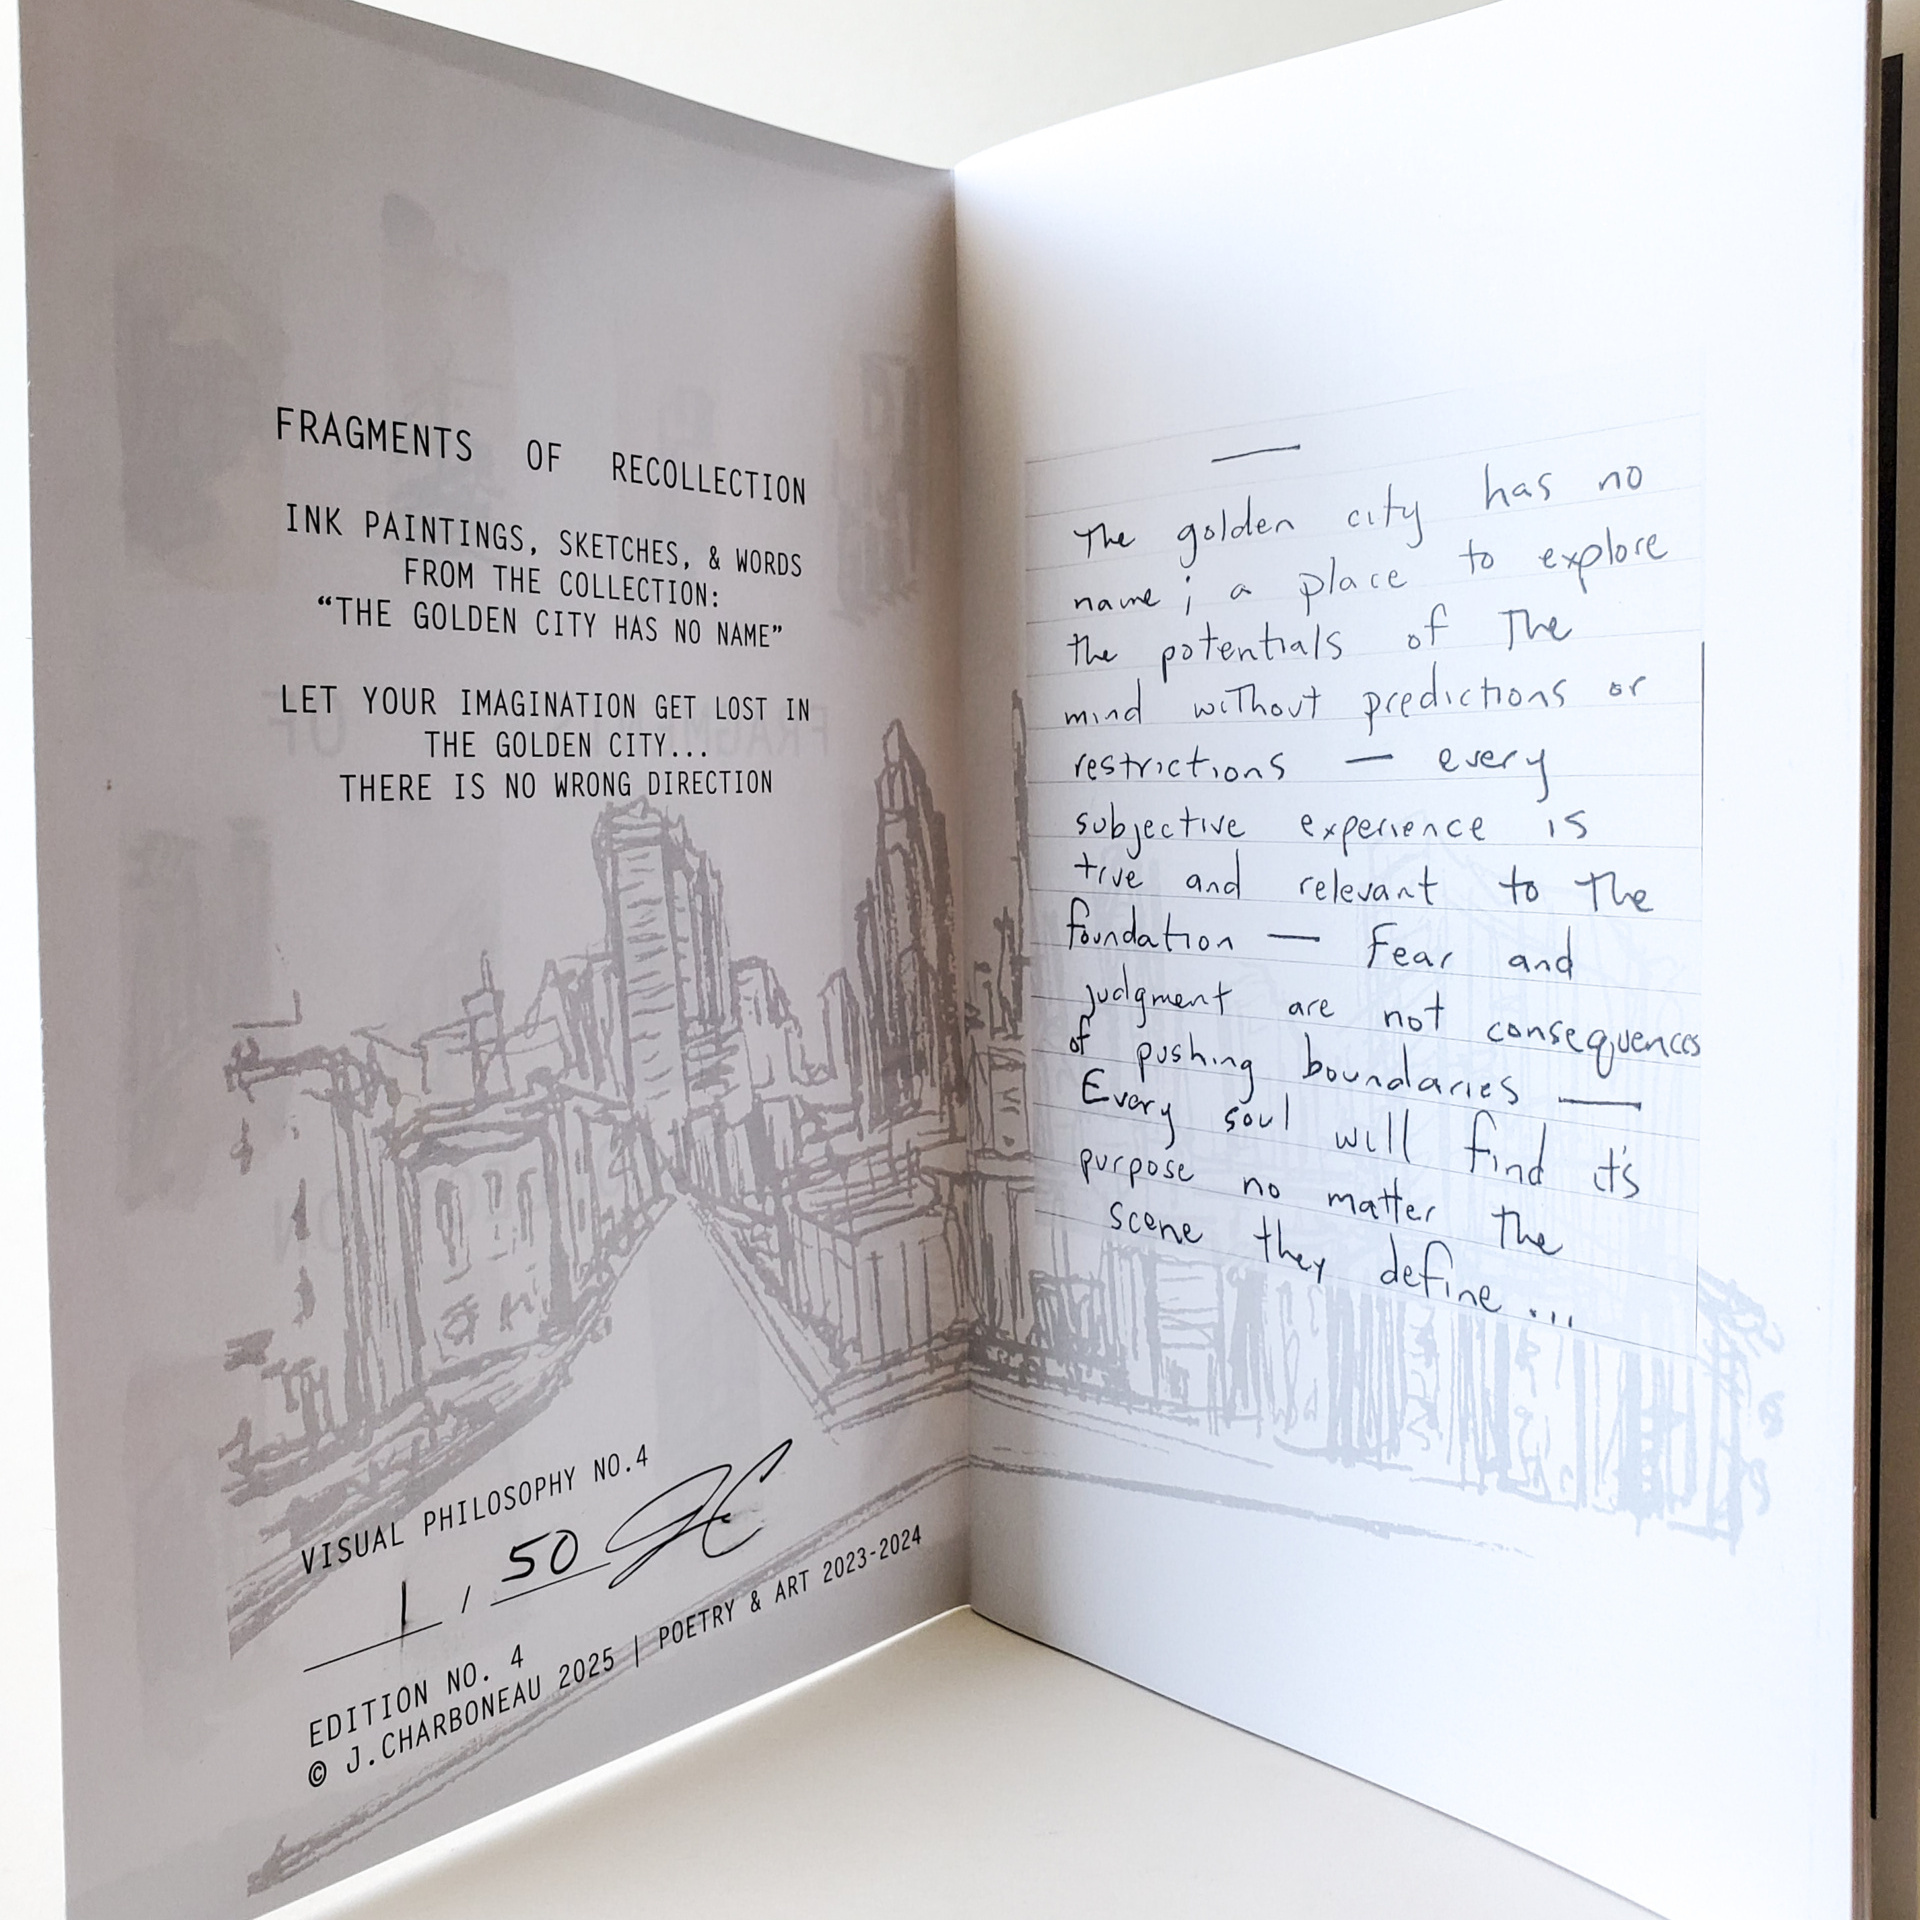 FRAGMENTS OF RECOLLECTION
INK PAINTINGS, SKETCHES, & WORDS
FROM THE COLLECTION:
“THE GOLDEN CITY HAS NO NAME”
LET YOUR IMAGINATION GET LOST IN
THE GOLDEN CITY...
THERE IS NO WRONG DIRECTION
VISUAL PHILOSOPHY NO.4
1 / 50 JC
EDITION NO. 4
© J.CHARBONEAU 2025 | POETRY & ART 2023-2024
The golden city has no
name; a place to explore
the potentials of The
mind without predictions or
restrictions — every
subjective experience is
true and relevant to The
foundation — Fear and
judgment are not consequences
of pushing boundaries —
Every soul will find it's
purpose no matter The
scene they define...